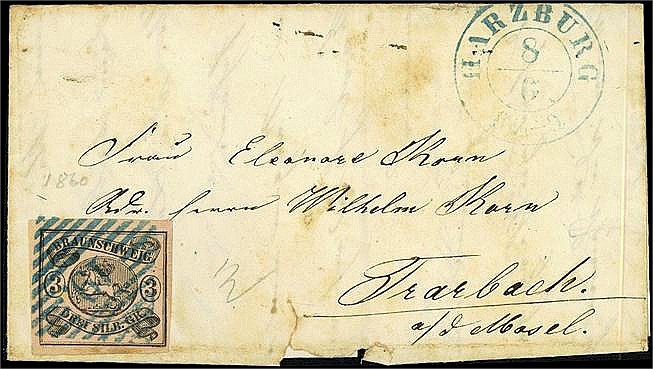 HARZBURG
8
6
Frau Eleonore Korn
Adr. Herrn Wilhelm Korn
1860
Trarbach.
a/d Mosel.
BRAUNSCHWEIG.
3 3
DREI SILB. GR.